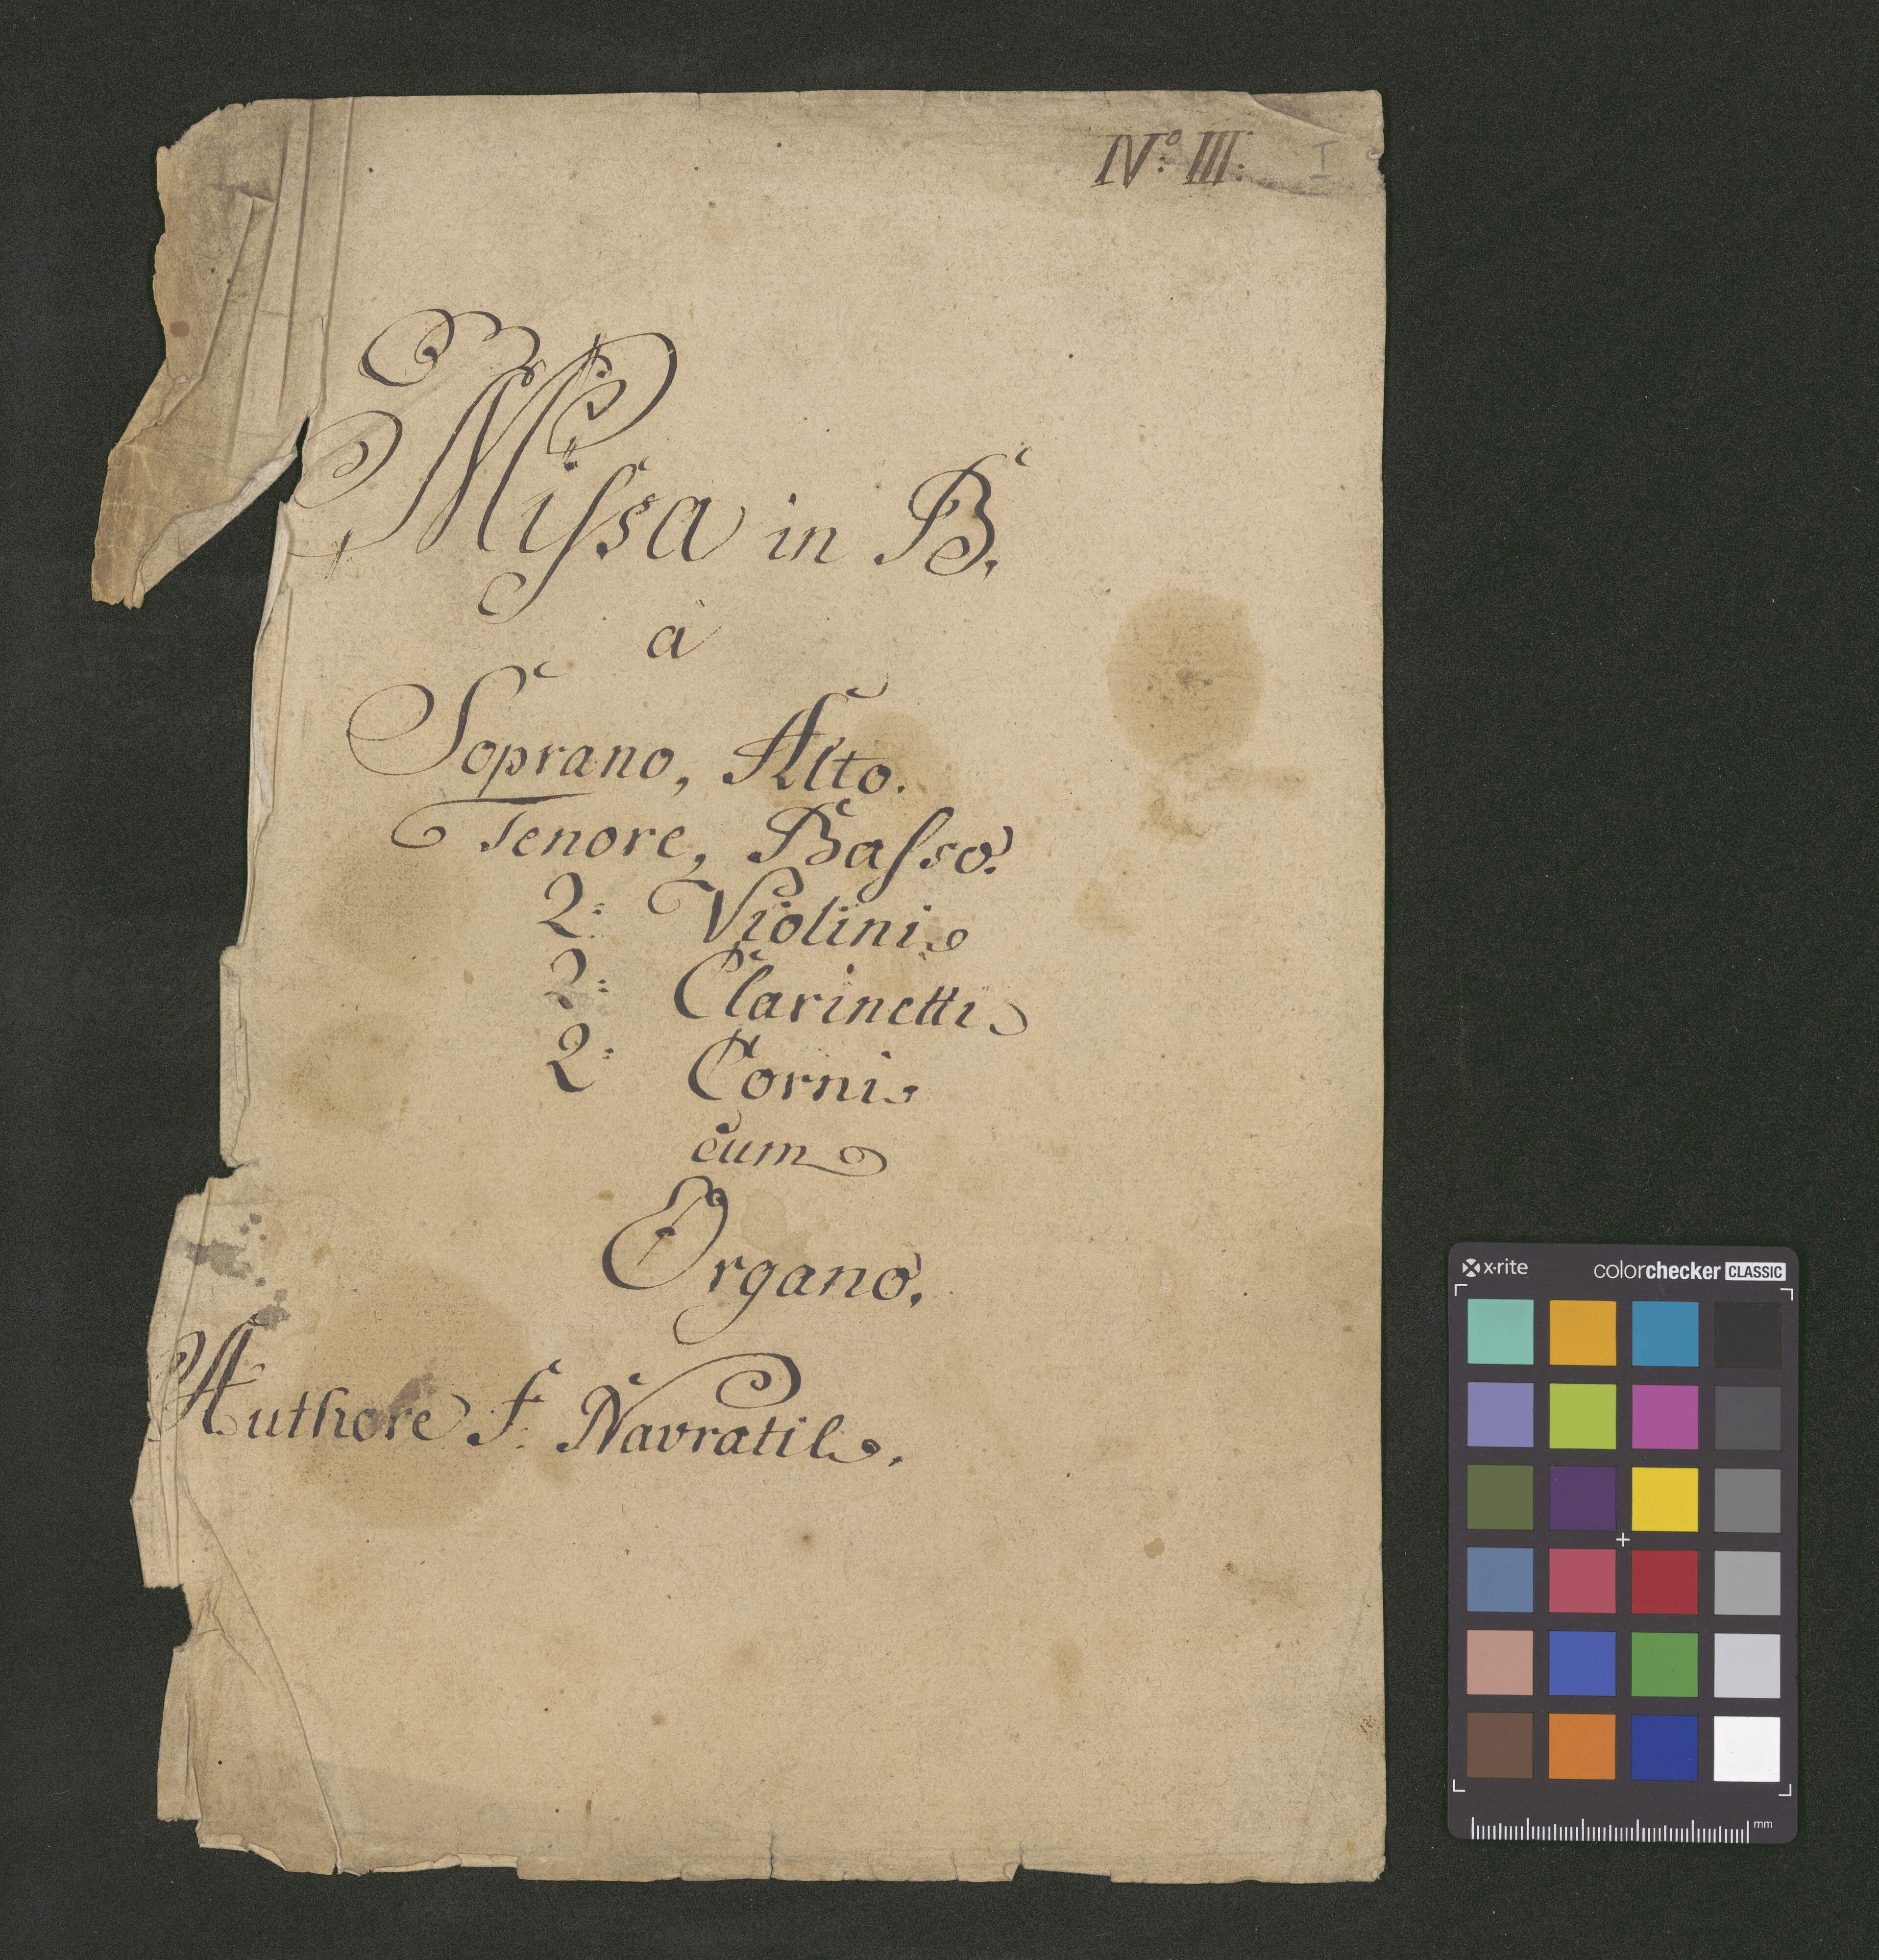 No: III:
I
Missa in B.
à
Soprano, Alto.
Tenore, Basso.
2: Violini
2: Clarinetti
2: Corni
cum
Organo.
Authore F. Navratil.
x·rite colorchecker CLASSIC
mm